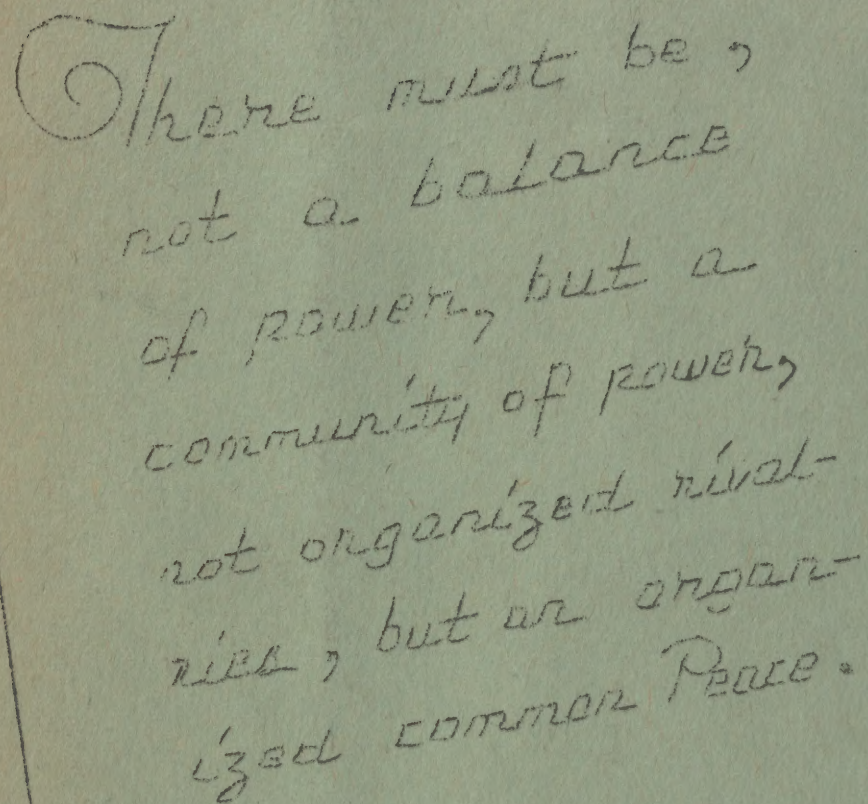 There must be,
not a balance
of power, but a
community of power,
not organized rival-
ries, but an organ-
ized common Peace.